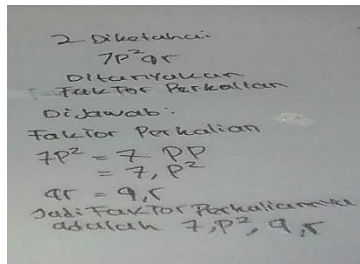 2. Diketahui
7p²qr
Ditanyakan
Faktor Perkalian
Dijawab:
Faktor Perkalian
7p² = 7 pp
= 7, p²
qr = q,r
Jadi Faktor Perkaliannya
adalah 7,p², q,r